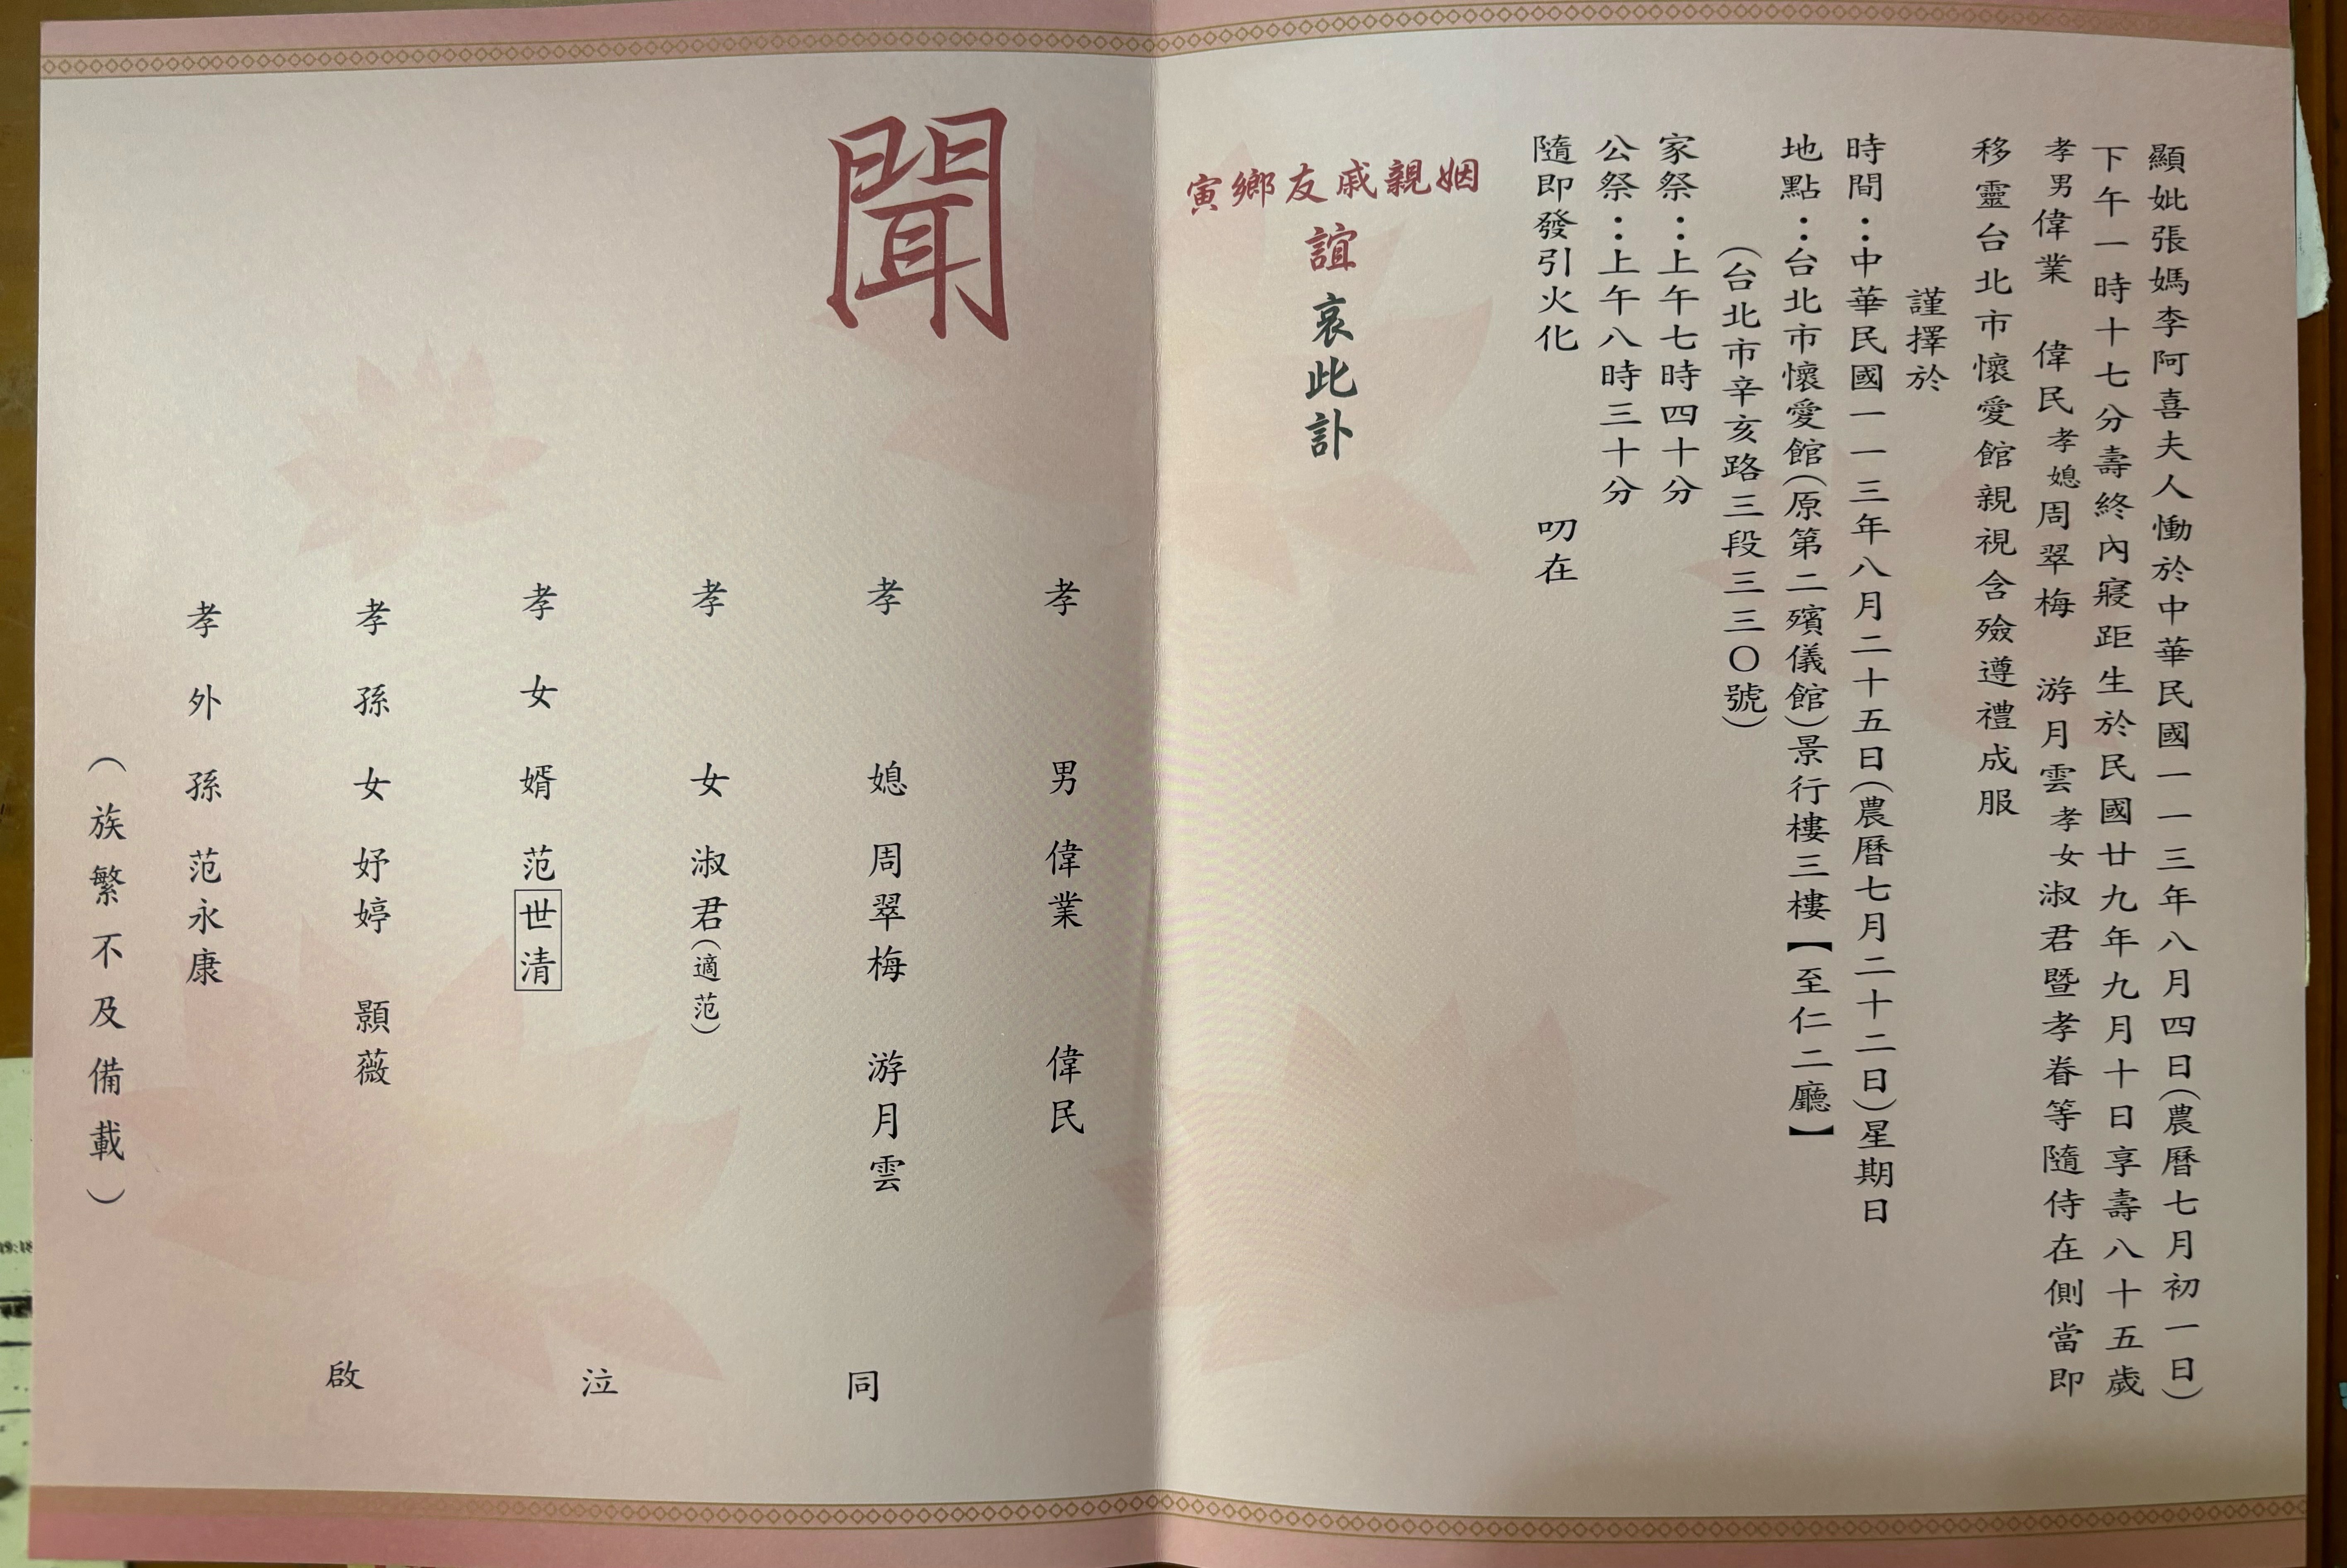 顯妣張媽李阿喜夫人慟於中華民國一一三年八月四日(農曆七月初一日)
下午一時十七分壽終內寢距生於民國廿九年九月十日享壽八十五歲
孝男偉業 偉民孝媳周翠梅 游月雲孝女淑君暨孝眷等隨侍在側當即
移靈台北市懷愛館親視含殮遵禮成服
謹擇於
時間：中華民國一一三年八月二十五日(農曆七月二十二日)星期日
地點：台北市懷愛館(原第二殯儀館)景行樓三樓【至仁二廳】
(台北市辛亥路三段三三〇號)
家祭：上午七時四十分
公祭：上午八時三十分
隨即發引火化 叨在
姻親戚友鄉寅
誼 哀此訃
聞
孝 男 偉業 偉民
孝 媳 周翠梅 游月雲
孝 女 淑君(適范)
孝女婿 范世清
孝孫女 妤婷 顥薇
孝外孫 范永康
(族繁不及備載)
同 泣 啟